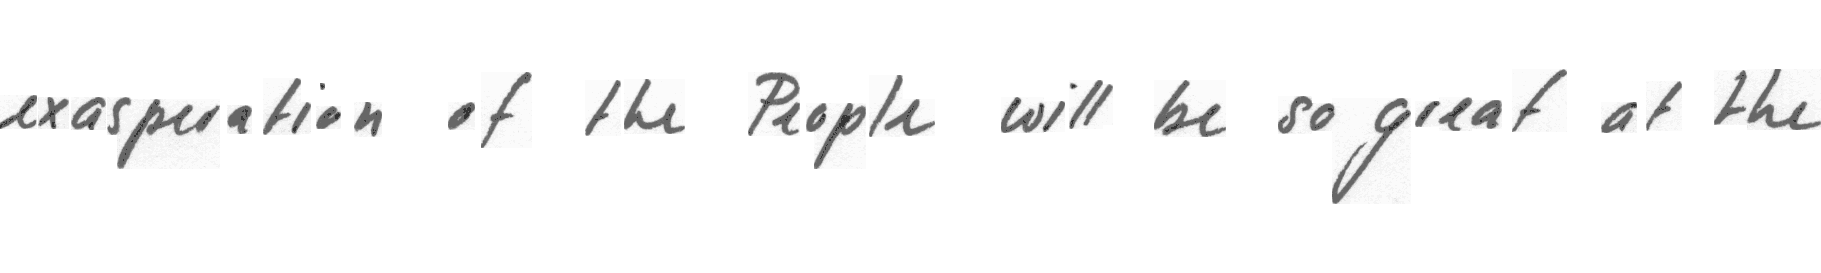 exasperation of the People will be so great at the